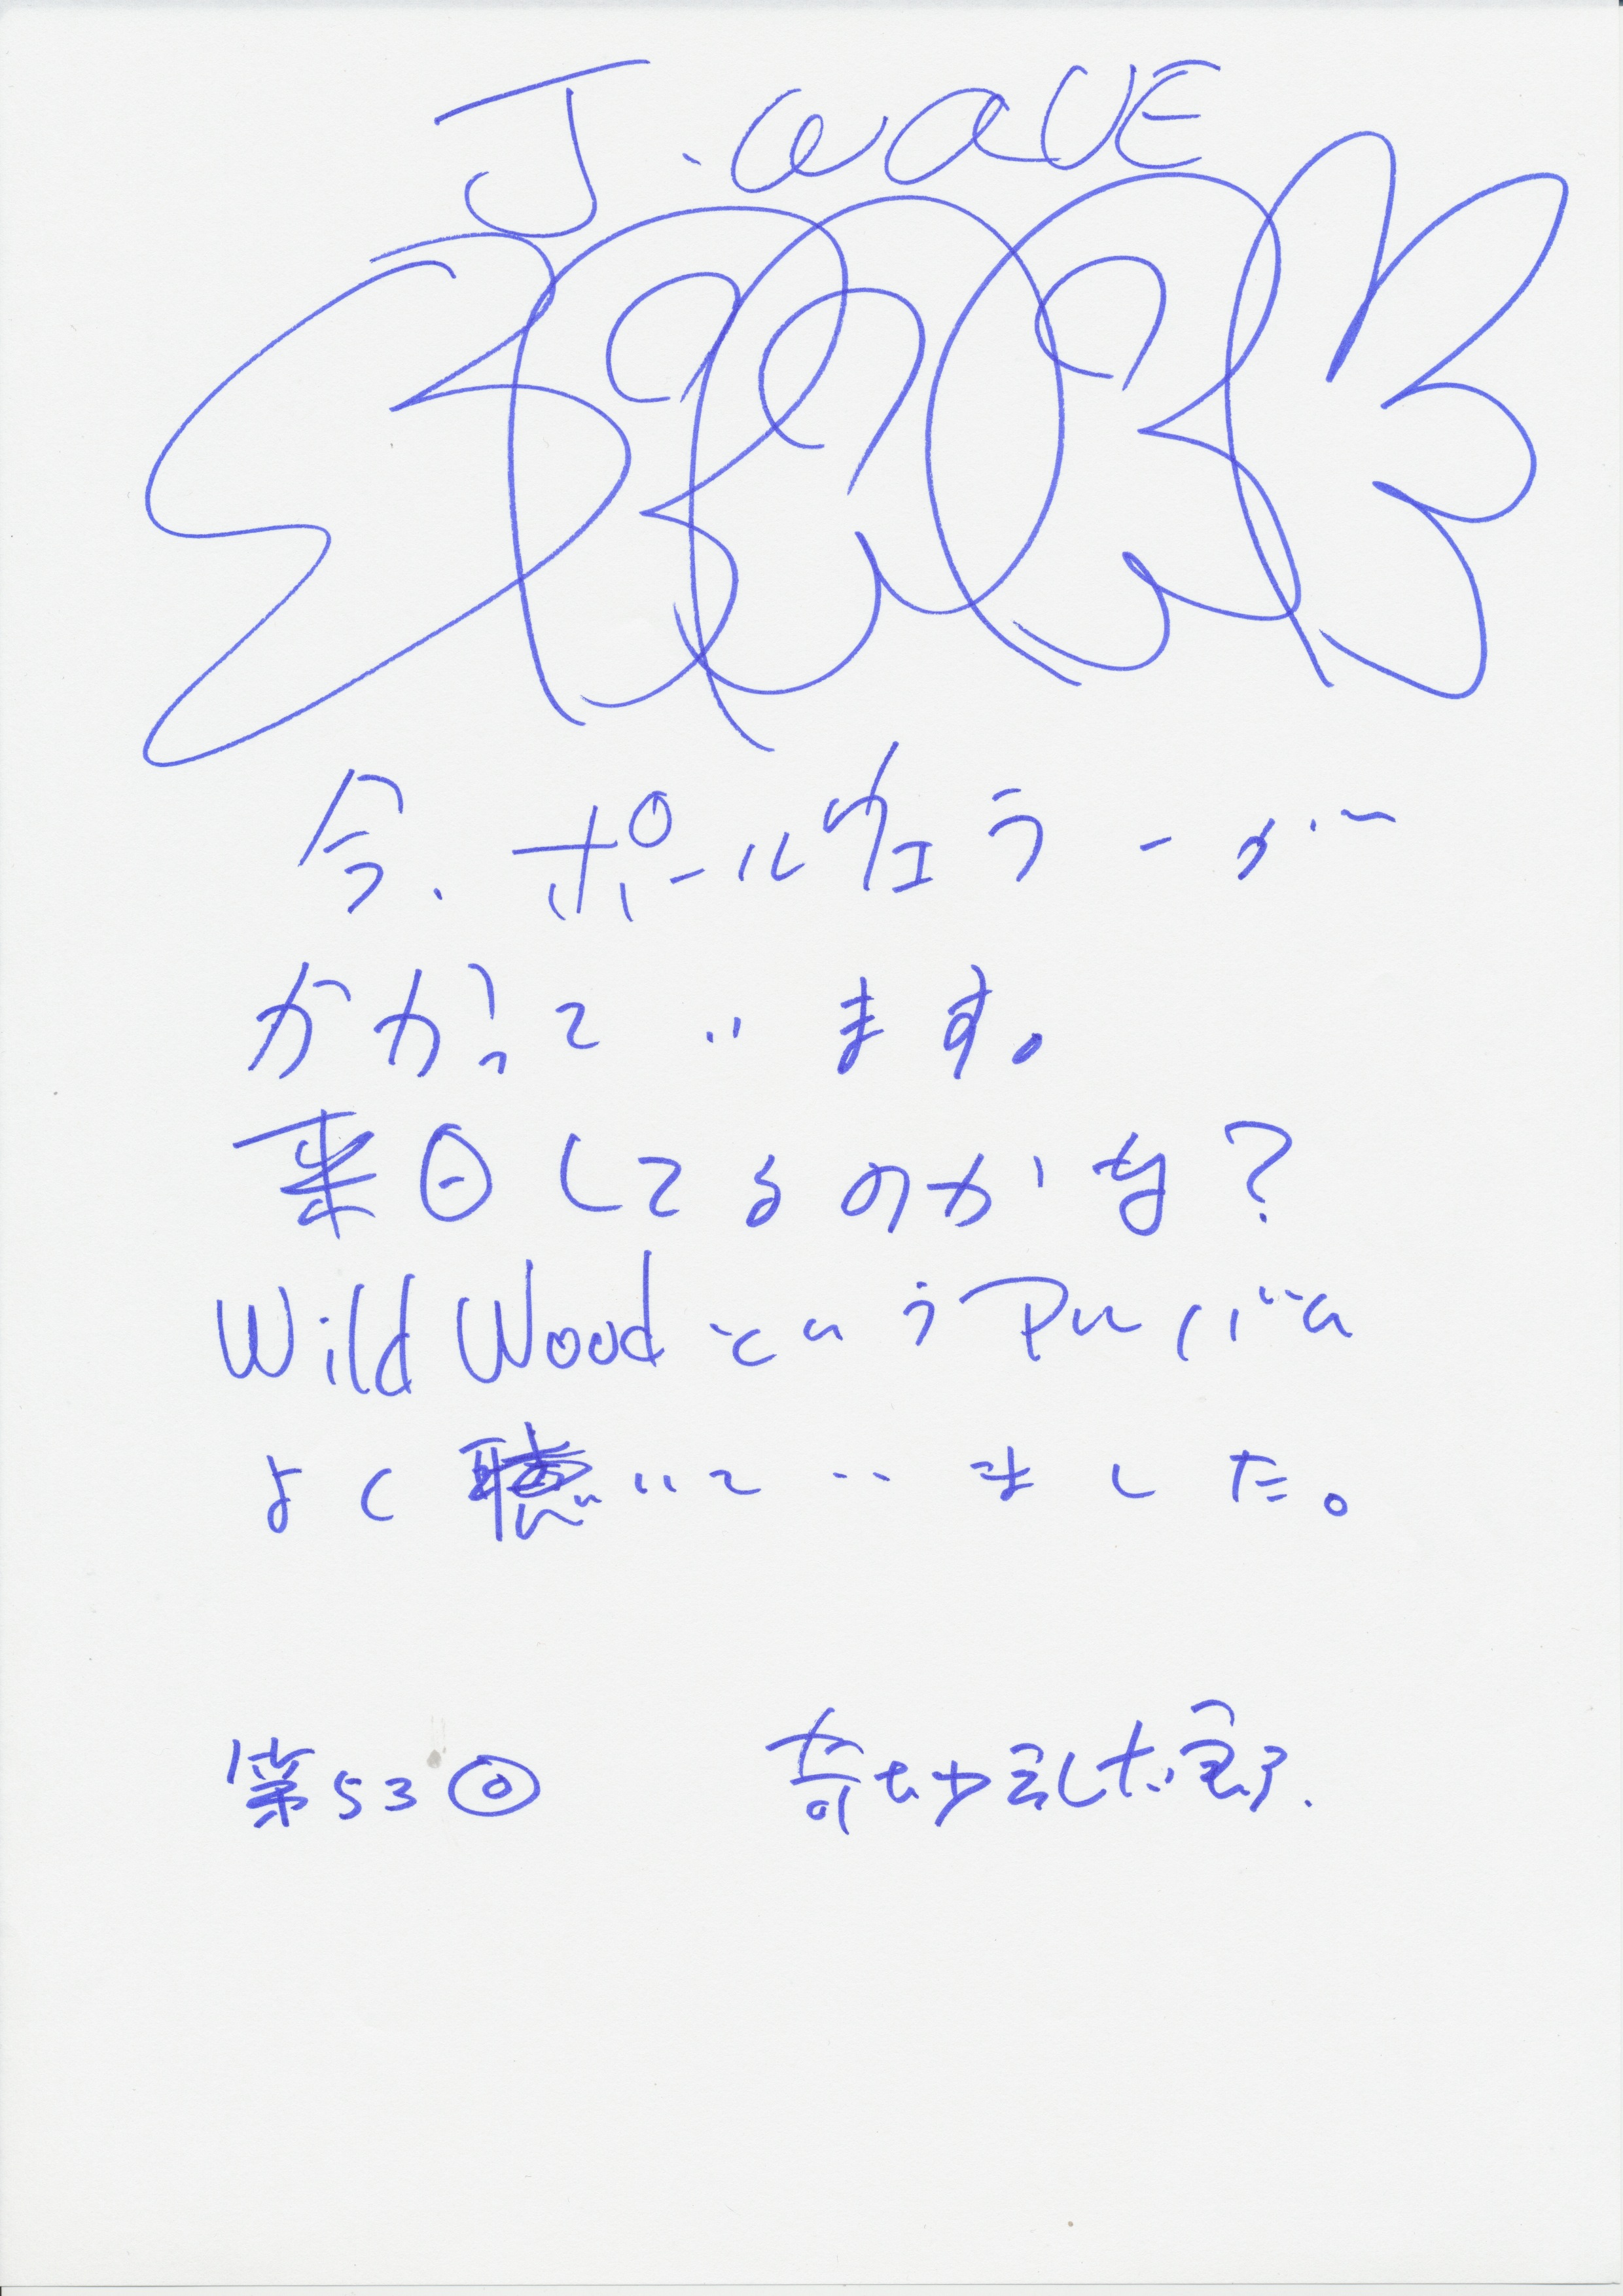 J-WAVE
今、ポールウェラーが
かかっています。
来日してるのかな?
Wild Woodというアルバム
よく聴いていました。
第53回 奇妙礼太郎.